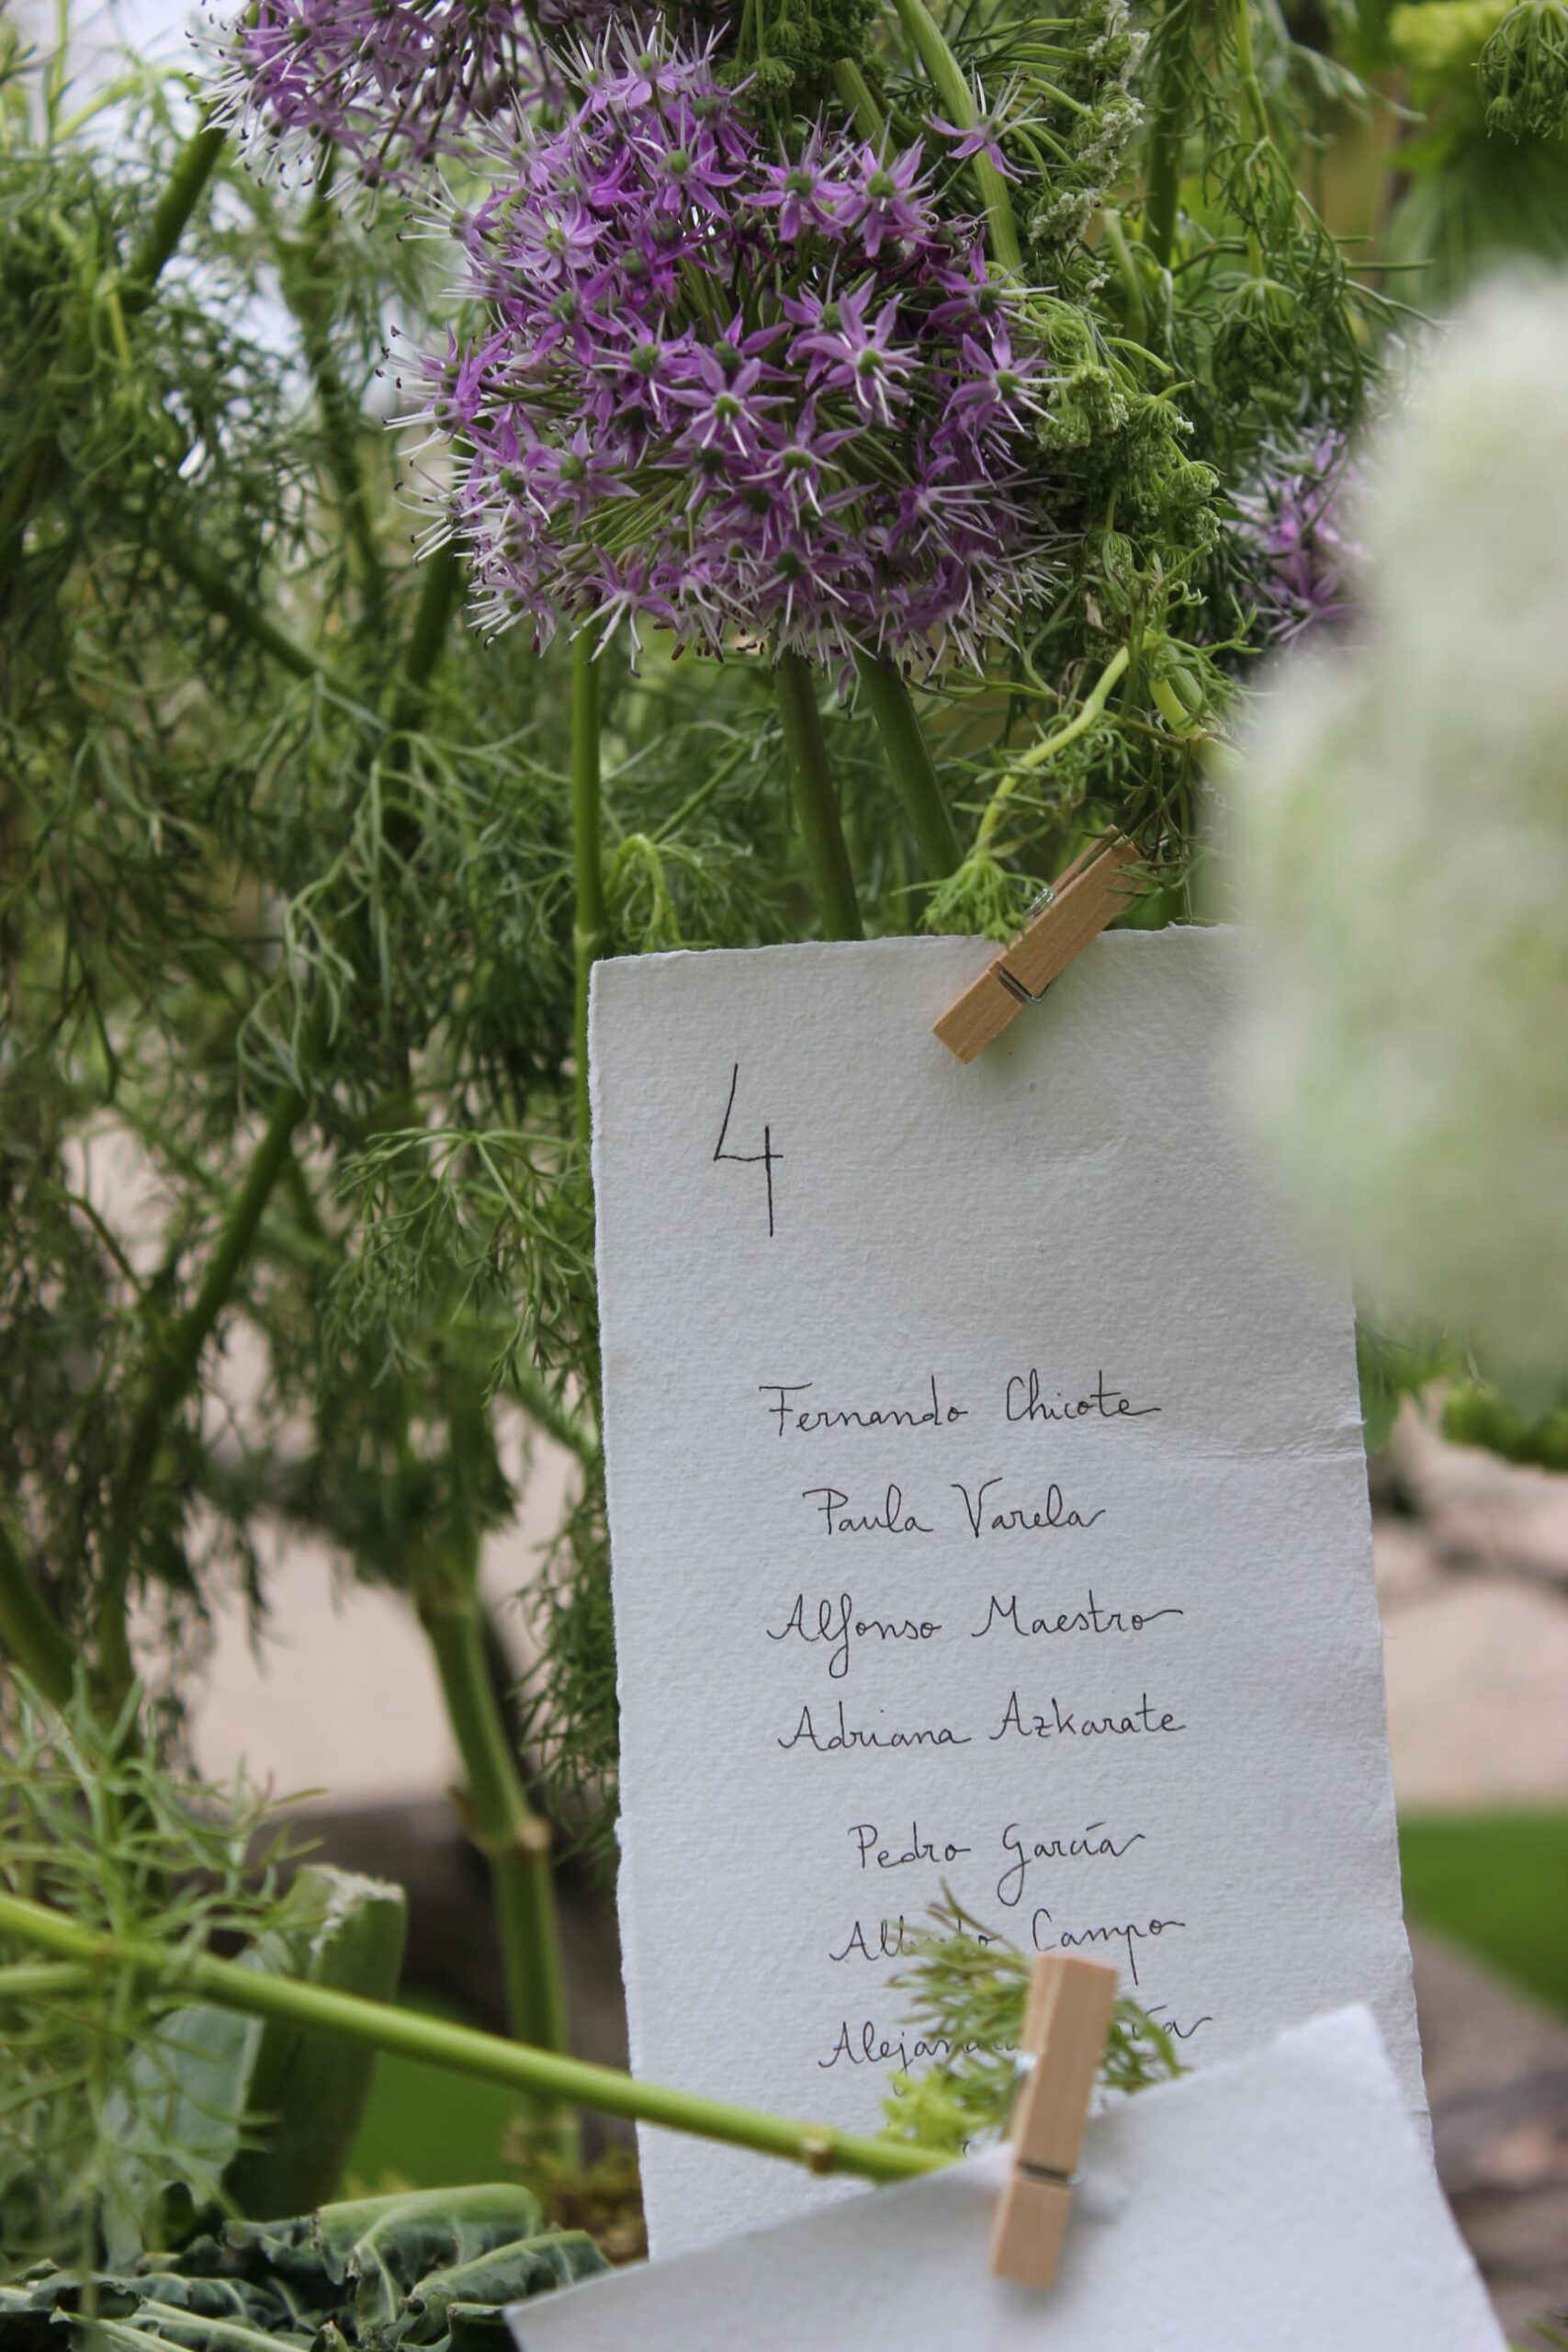 4
Fernando Chicote
Paula Varela
Alfonso Maestro
Adriana Azkarate
Pedro García
Campo